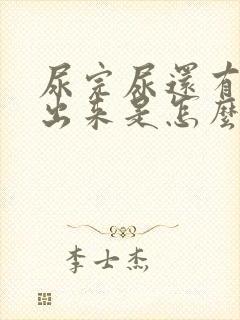 尿完尿還有
出來是怎麼
李士杰